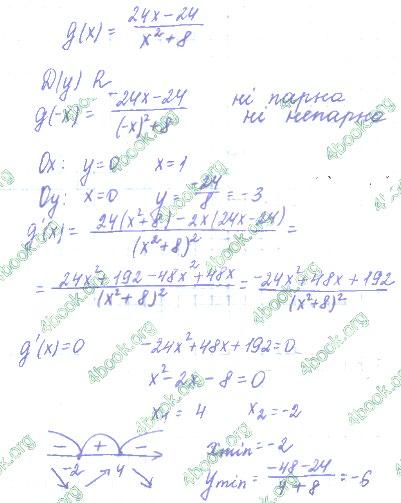 g(x) = (24x-24)/(x²+8)
D(y) R
g(-x) = (-24x-24)/((-x)²+8) ні парна
ні непарна
Ox: y=0 x=1
Oy: x=0 y = -24/8 = -3
g'(x) = (24(x²+8) - 2x(24x-24))/(x²+8)² =
= (24x²+192-48x²+48x)/(x²+8)² = (-24x²+48x+192)/(x²+8)²
g'(x)=0 -24x²+48x+192=0
x²-2x-8=0
x₁ = 4 x₂ = -2
- + -
-2 4
xmin = -2
ymin = (-48-24)/(4+8) = -6
4book.org